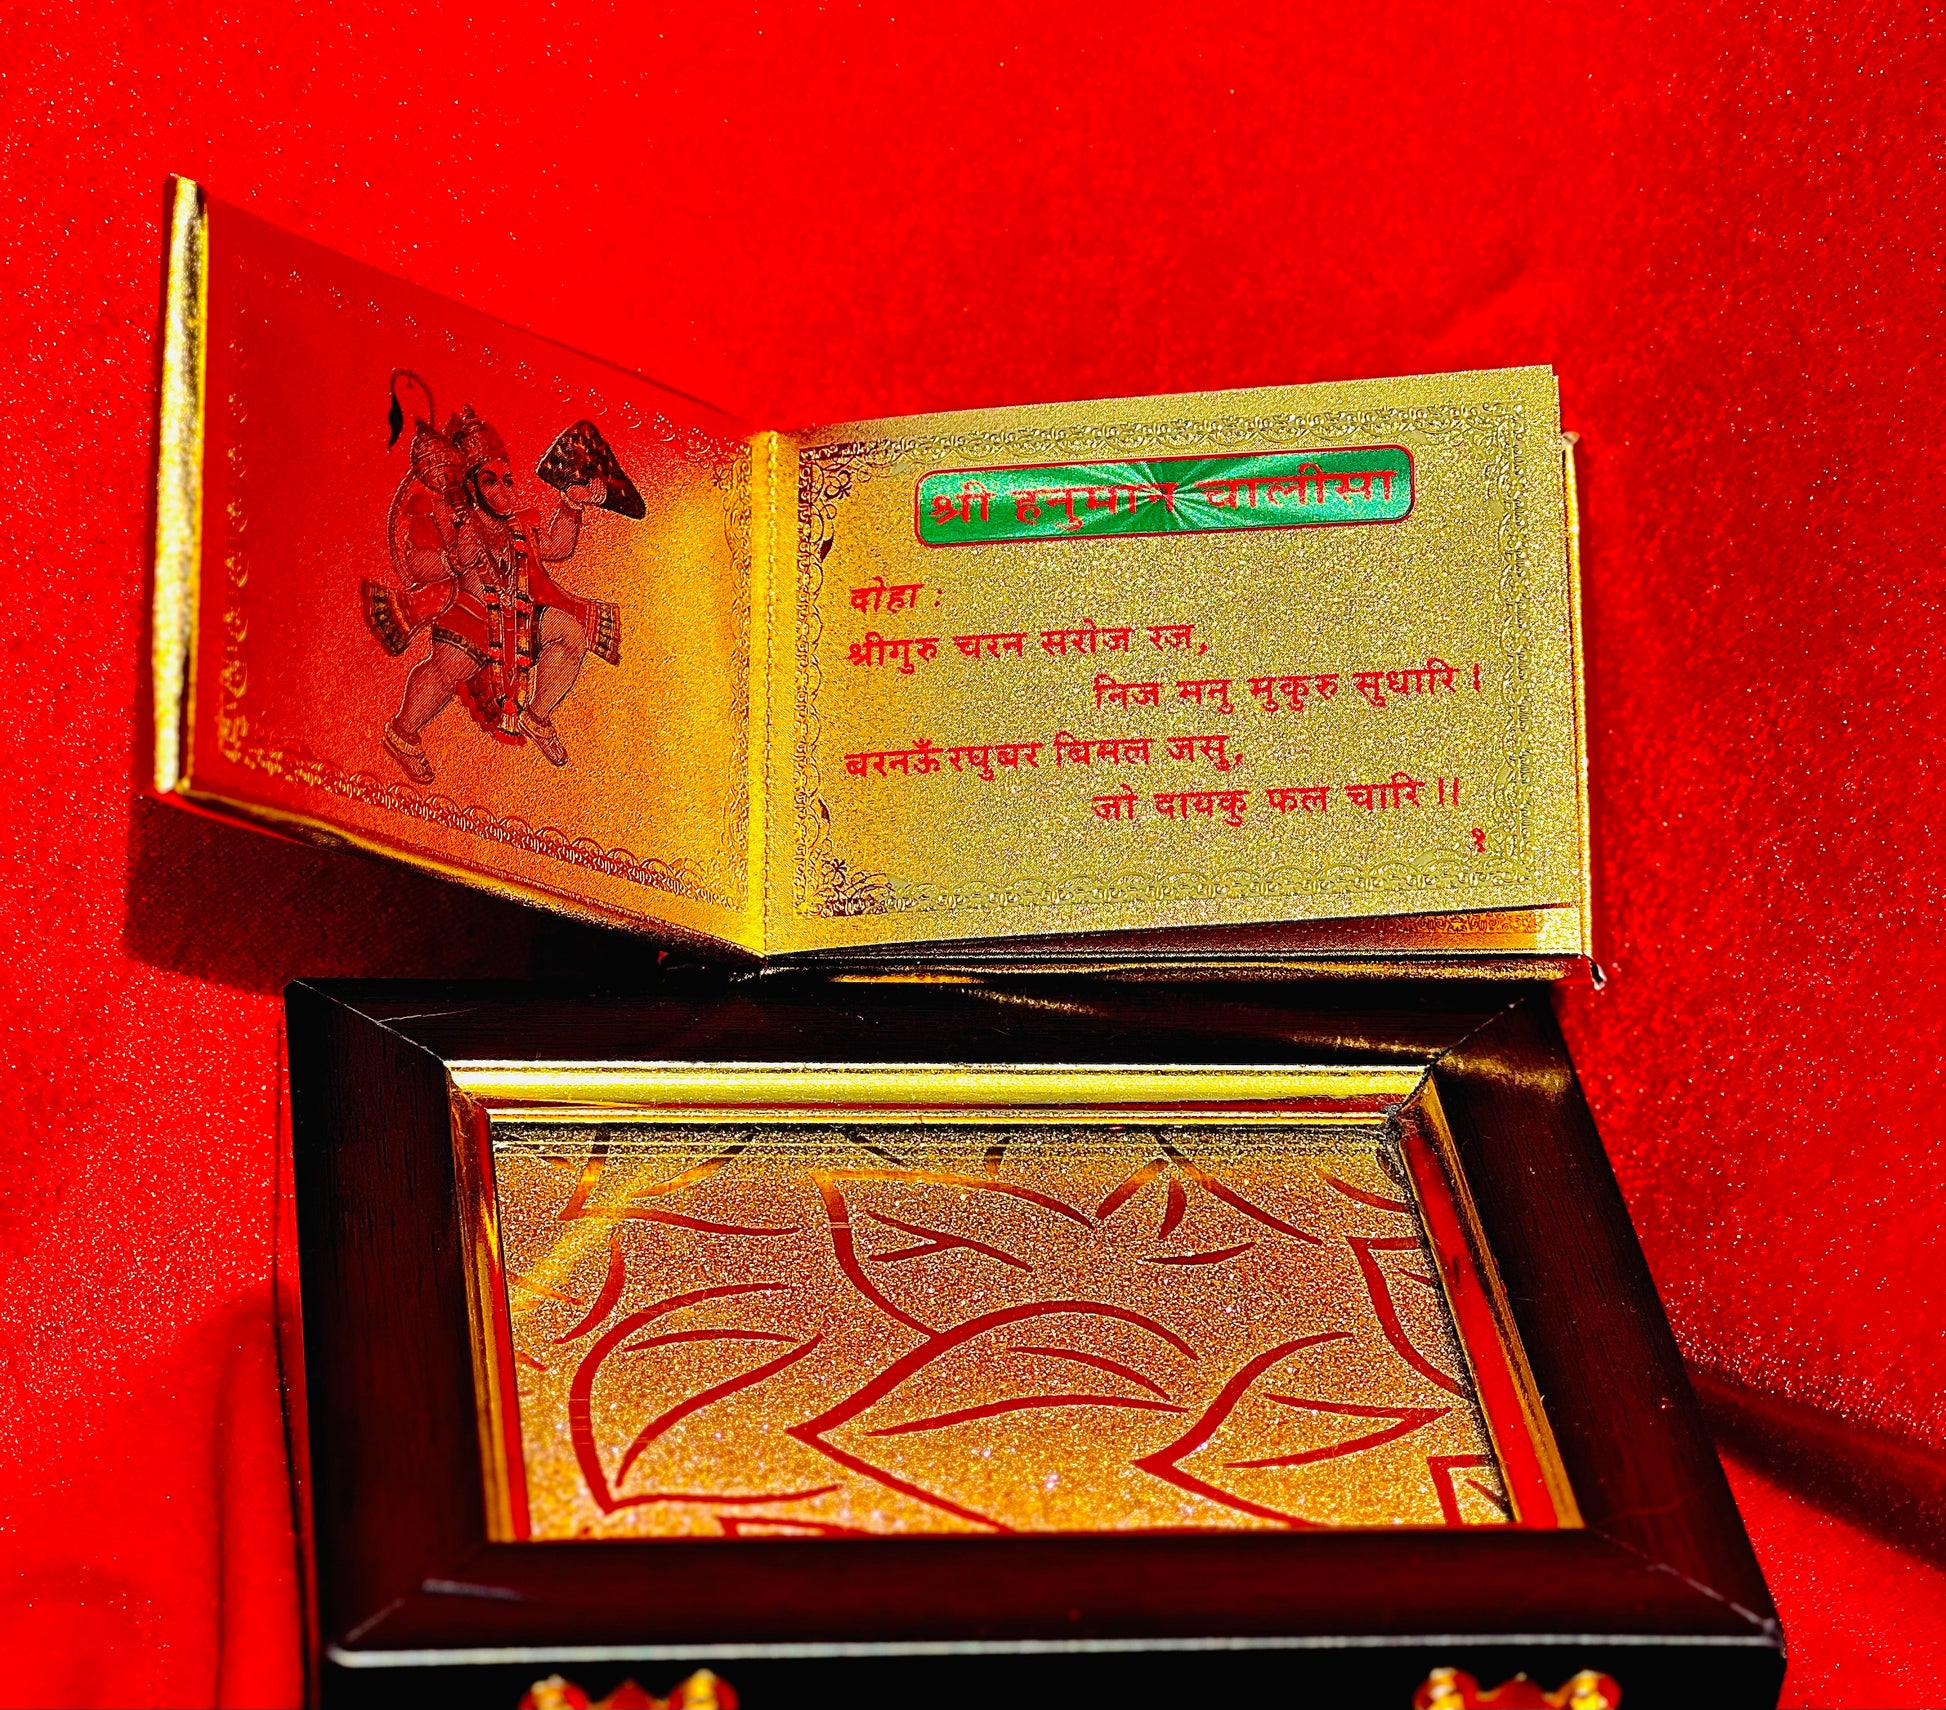 श्री हनुमान चालीसा
दोहा :
श्रीगुरु चरन सरोज रज,
निज मनु मुकुरु सुधारि ।
बरनऊँ रघुबर बिमल जसु,
जो दायकु फल चारि ।।
१